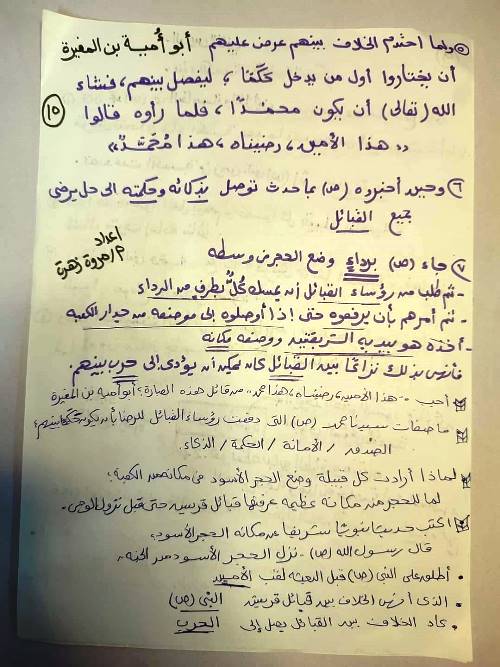 ⑤ ولما احتدم الخلاف بينهم عرض عليهم أبو أمية بن المغيرة
أن يختاروا أول من يدخل حكمًا، ليفصل بينهم، فشاء
الله (تعالى) أن يكون محمدًا، فلما رأوه قالوا
« هذا الأمين، رضيناه، هذا مُحَمَّدٌ»
١٥
⑥ وحين أخبروه (ص) بما حدث توصل بذكائه وحكمته الى حل يرضى
جميع القبائل
اعداد
م/مروة زهرة
⑦ جاء (ص) برداءٍ وضع الحجر فى وسطه
- ثم طلب من رؤساء القبائل أن يمسك كُلٌّ بطرفٍ من الرداء
- ثم أمرهم بأن يرفعوه حتى إذا أوصلوه إلى موضعه من جدار الكعبة
- أخذه هو بيديه الشريفتين ووضعه مكانه
فأنهى بذلك نزاعًا بين القبائل كان يمكن أن يؤدى إلى حرب بينهم.
أجب :- هذا الأمين، رضيناه، هذا محمد.. من قائل هذه العبارة؟ أبو أمية بن المغيرة
ما صفات سيدنا محمد (ص) التى دفعت رؤساء القبائل للرضا بأن يكون حكمًا بينهم؟
الصدق / الأمانة / الحكمة / الذكاء.
لماذا أرادت كل قبيلة وضع الحجر الأسود فى مكانه من الكعبة؟
لما للحجر من مكانه عظيمه عرفتها قبائل قريش حتى قبل نزول الوحى.
اكتب حديثا نبويًا شريفا عن مكانه الحجر الأسود؟
قال رسول الله (ص) - نزل الحجر الأسود من الجنه -
• أطلق على النبى (ص) قبل البعثه لقب الأمين
• الذى أنهى الخلاف بين قبائل قريش النبى (ص)
• كاد الخلاف بين القبائل يصل إلى الحرب